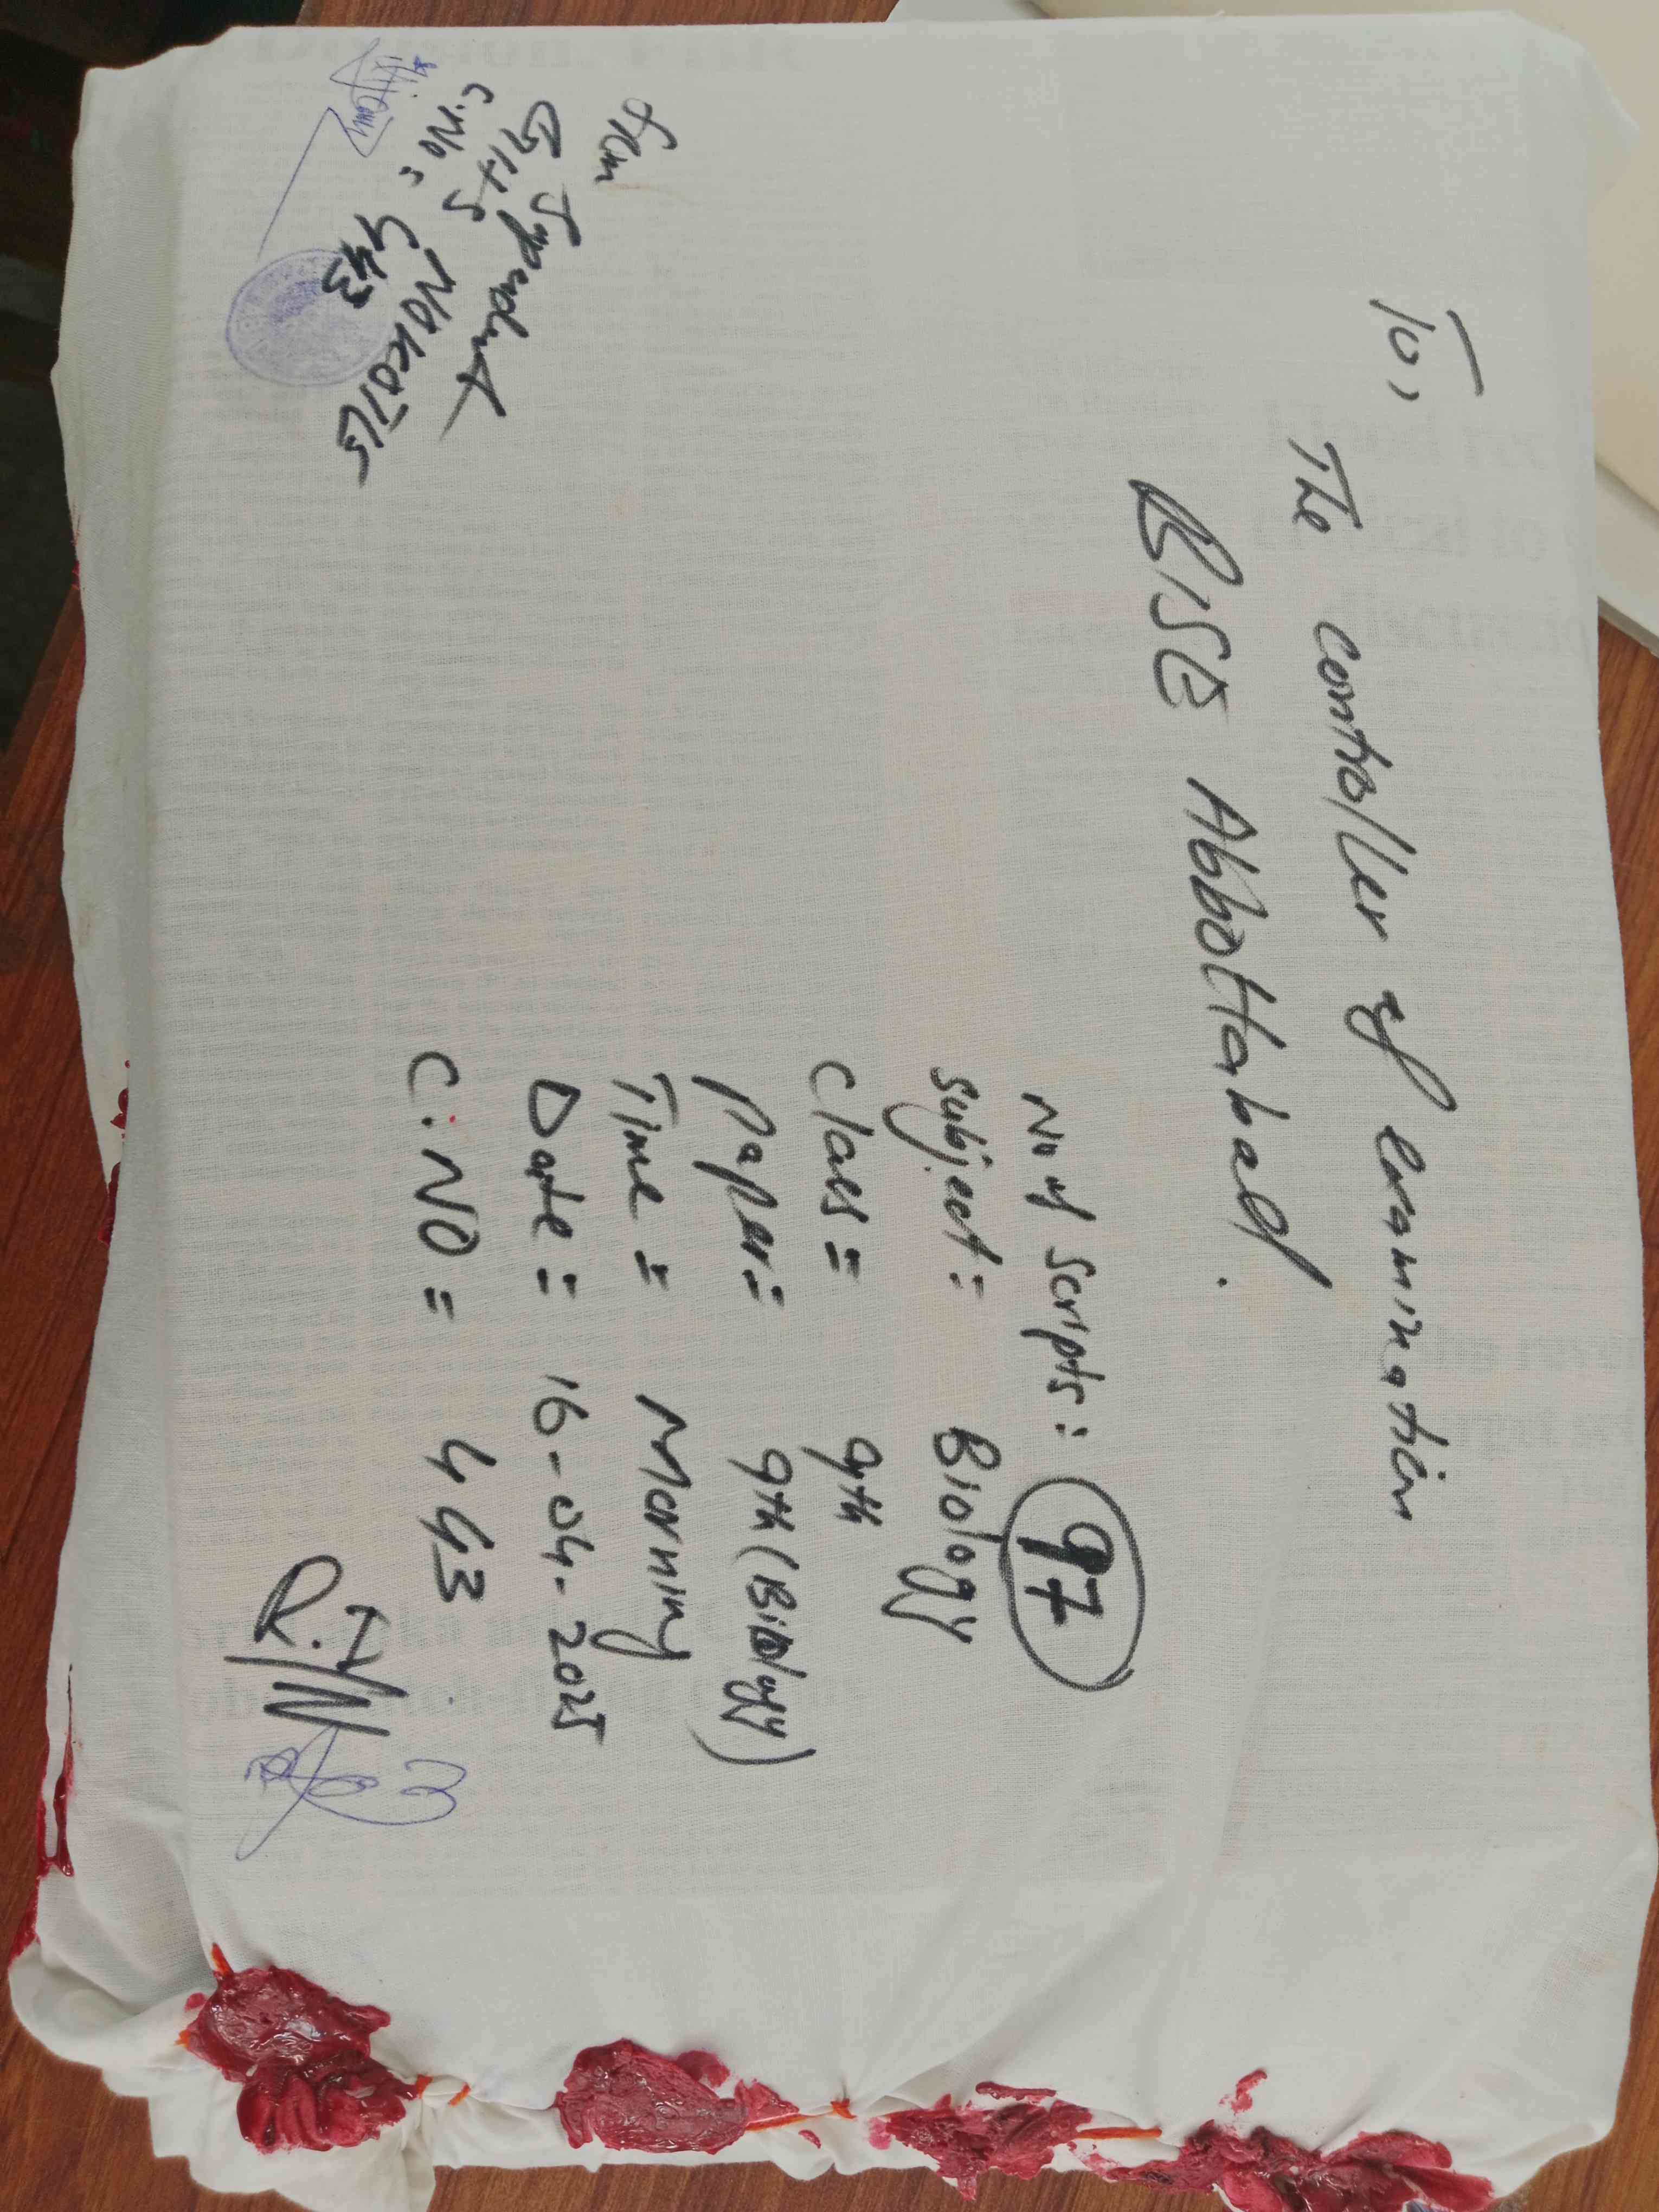 To,
The controller of examination
BISE Abbottabad.
No of Scripts: 97
Subject: Biology
Class = 9th
Paper: 9th (Biology)
Time = Morning
Date: 16-04-2025
C.NO = 443
from
C.No: 443